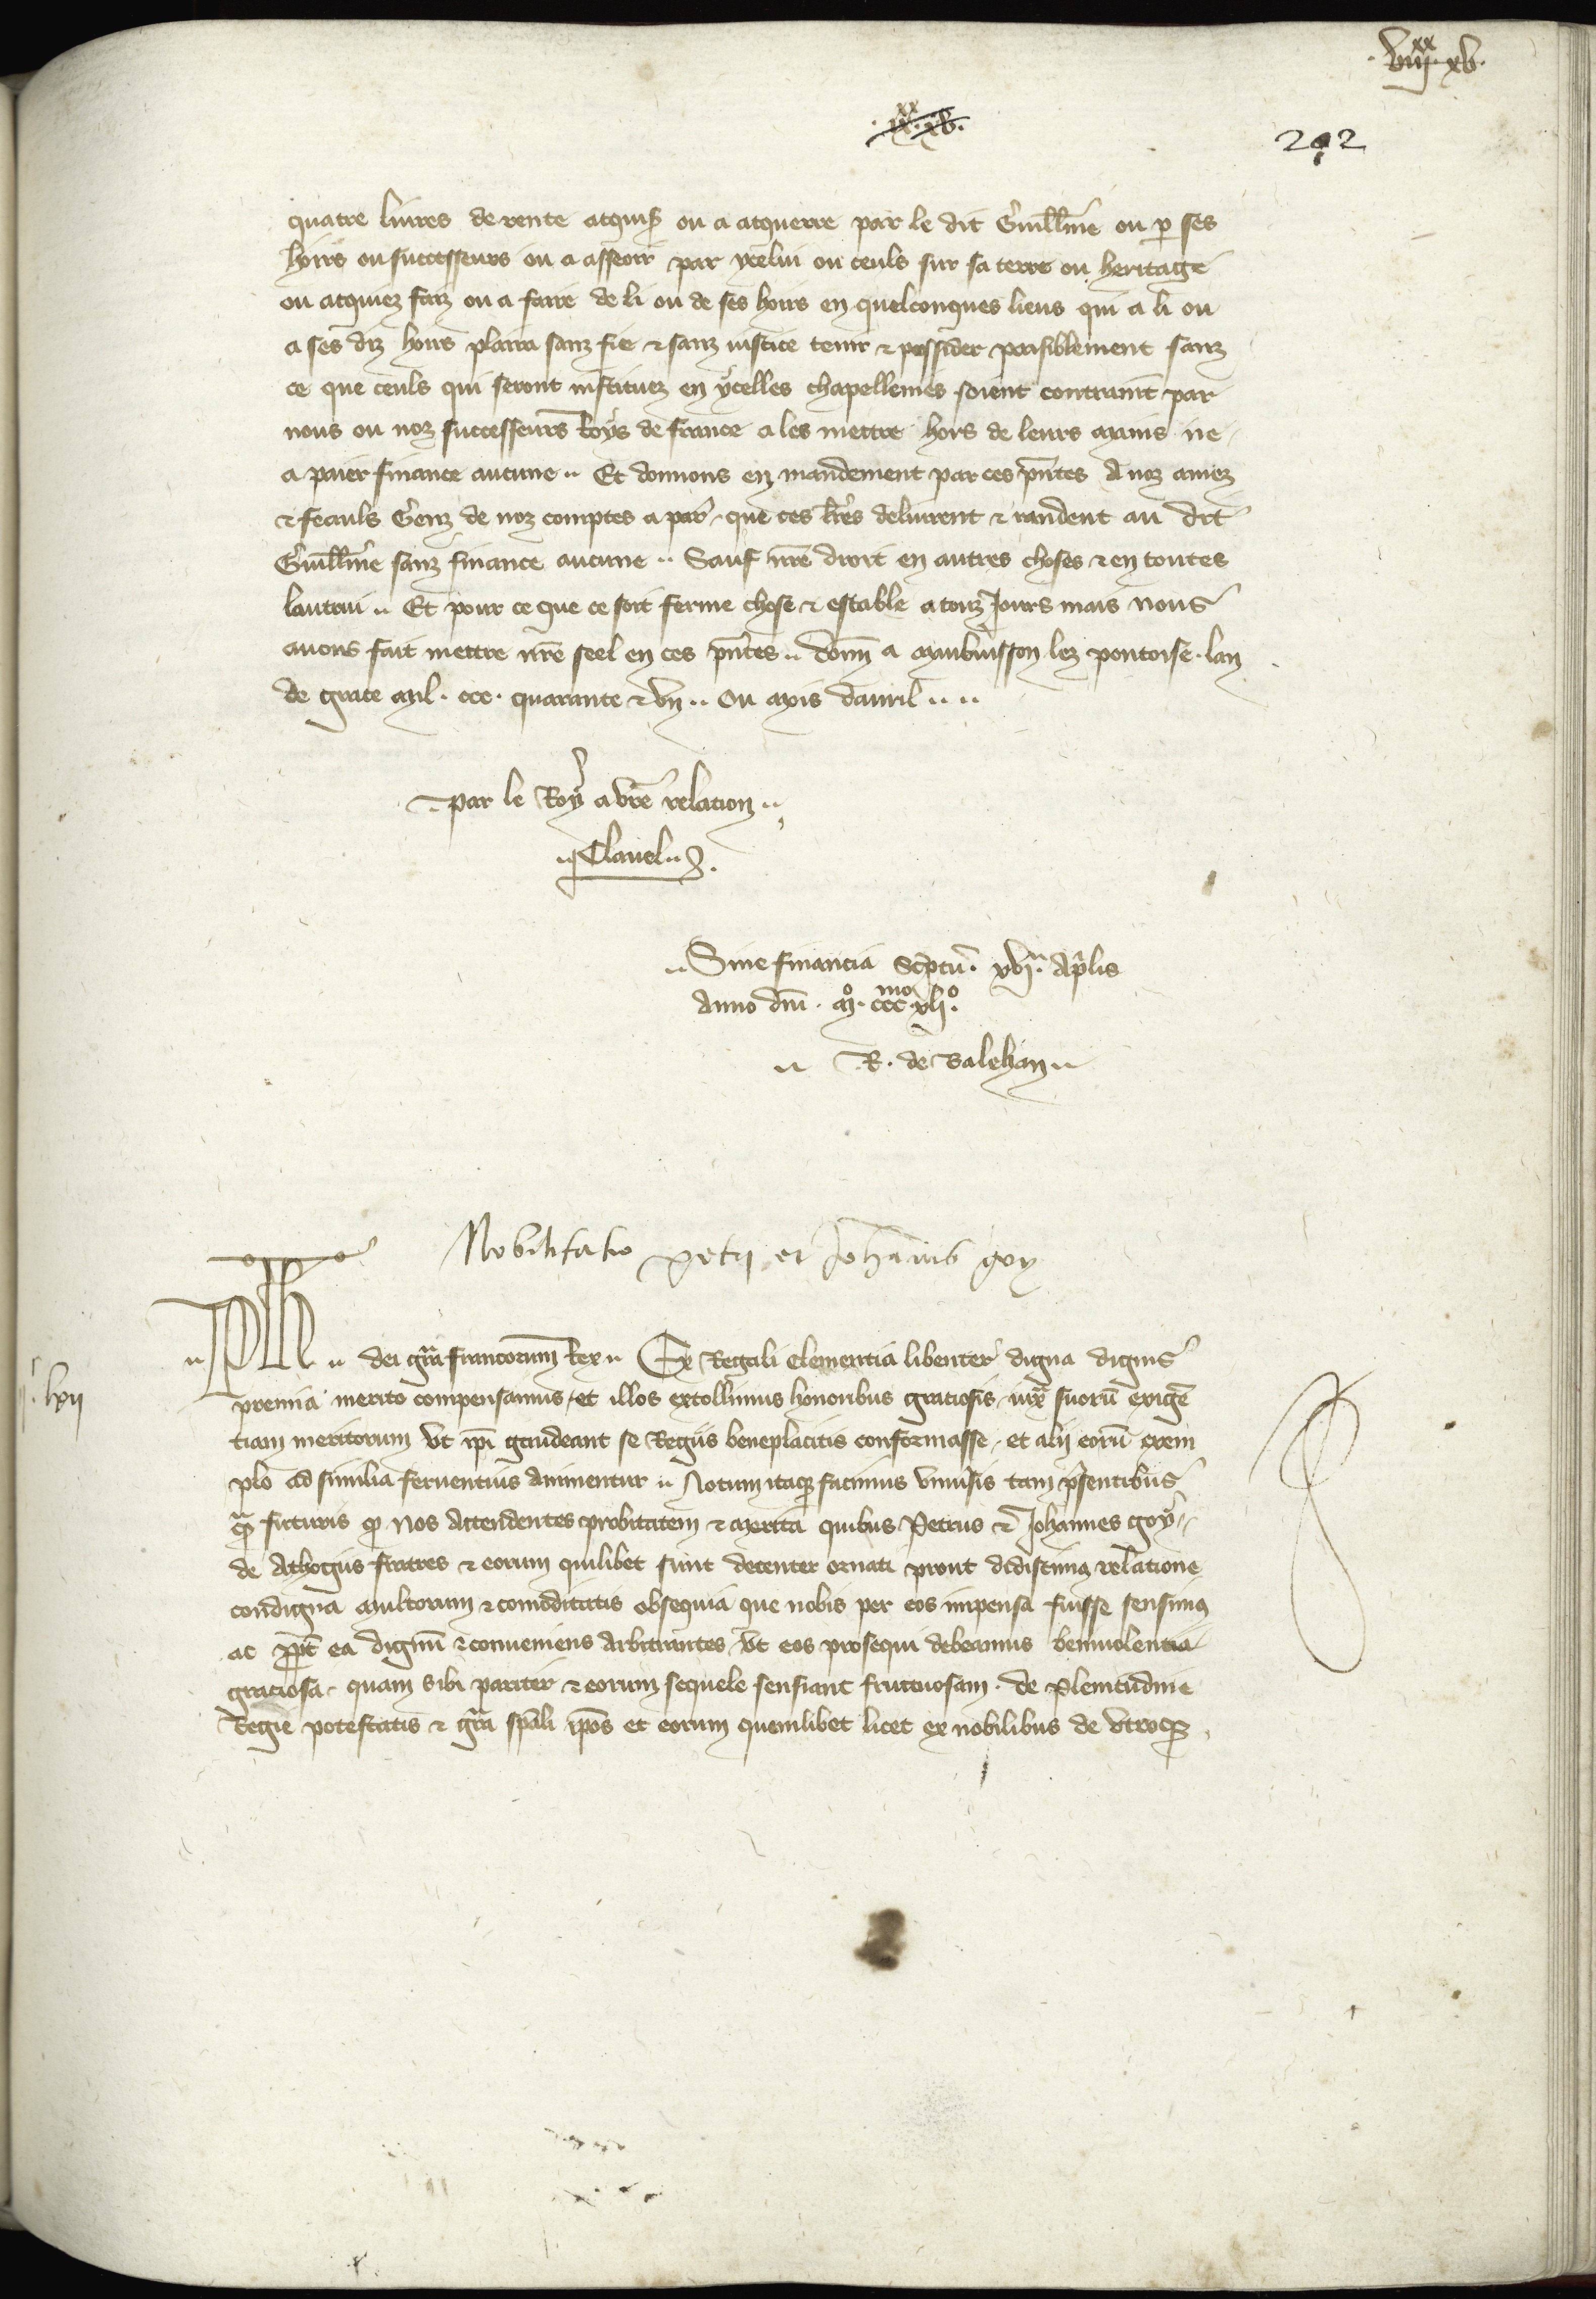 .viijxx.xv.
.ix.xx.xv.
292
quatre liures de rente acquis ou a acquerre par le dit Guill̃me ou p ses
hoirs ou successeurs ou a asseoir par ycelui ou ceuls sur sa terre ou heritage
ou acquiez faiz ou a faire de li ou de ses hoirs en quelconques lieus qui a li ou
a ses diz hoirs plaira sanz fie & sanz iustice tenir & possider paisiblement sanz
ce que ceuls qui seront instituez en ycelles chapellenies soient contraint par
nous ou noz successeurs Roys de france a les mettre hors de leurs mains ne
a paier finance aucune .. Et donnons en mandement par ces p̃ntes A noz amez
& feauls Genz de noz comptes a par̃ que ces l̃res deliurent & randent au dit
Guill̃me sanz finance aucune .. Sauf nr̃e droit en autres choses & en toutes
lautrui .. Et pour ce que ce soit ferme chose & estable a touz Jours mais nous
auons fait mettre nr̃e seel en ces p̃ntes .. donñ a Maubuisson lez pontoise . lan
de grace Mil . ccc . quarante & vn .. Ou Mois dauril .. ..
.. par le Roy a vr̃e relacion ..
.. Clauel ..
.. Sine financia Sc̃ptũ . xvja . Ap̃lis
Anno dñi . Mo. cccmo xljo.
.. R . de Balehan ..
Nobilitatio petri et Johãnis goy
.. Ph .. dei gr̃a francorum Rex .. Ex Regali clementia libenter digna dignis
lxij
premia merito compensamus, et illos extollimus honoribus graciosis, iux̃ suorũ exigẽ
tiam meritorum Vt ip̃i gaudeant se Regiis beneplacitis conformasse, et alij eorũ exem
plo ad similia feruentius animentur .. Notum itaq; facimus vniũsis tam p̃sentibus
q̃ futuris q̃ Nos Attendentes probitatem & merita quibus Petrus & Johannes goy
de Athogiis fratres & eorum quilibet sunt decenter ornati prout didiscimus relatione
condigna multorum & comoditatis obsequia que nobis per eos impensa fuisse sensimus
ac p̃pt̃ ea dignũ & conueniens Arbitrantes Vt eos prosequi debeamus beniuolentia
graciosa, quam sibi pariter & eorum sequele sensiant fructuosam . de plenitudine
Regie potestatis & gr̃a sp̃ali ip̃os et eorum quemlibet licet ex nobilibus de vtroq;